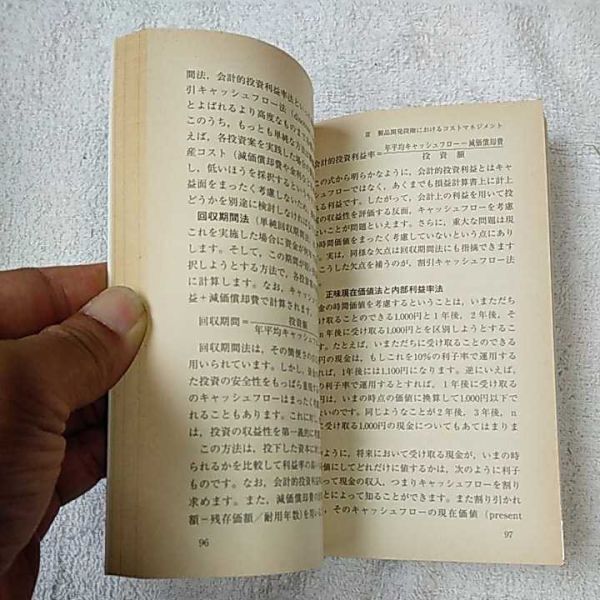 間法，会計的投資利益率法とい
引キャッシュフロー法
とよばれるより高度なものま
このうち，もっとも単純な方
えば，各投資案を実践した場合の
産コスト（減価償却費や金利な
し，低いほうを採択するという
益面をまったく考慮しないため，
どうかを別途に検討しなければ
回収期間法（単純回収期間法
これを実施した場合に資金が
します。そして，この期間が短い
択しようとする方法で，各投資
に計算します。なお，キャッシ
益＋減価償却費で計算されます。
回収期間＝投資額
年平均キャッシュフ
回収期間法は，その簡便さの
用いられています。しかし，資
た投資の安全性をもっぱら重視す
のキャッシュフローはまったく考
れることもあります。これに対
は，投資の収益性を第一義的に
この方法は，投下した資本に
られるかを比較して利益率の高い
ものです。なお，会計的投資利
求めます。また，減価償却費
額－残存価額／耐用年数）を用い
96
Ⅲ 製品開発段階におけるコストマネジメント
会計的投資利益率＝年平均キャッシュフロー－減価償却費
投 資 額
この式から明らかなように，会計的投資利益とはキャ
シュフローではなく，あくまでも損益計算書上に計上
る利益です。したがって，会計上の利益を用いて投
の収益性を評価する反面，キャッシュフローを考慮
いことが問題といえます。さらに，重大な問題は現
時間価値をまったく考慮していないという点にあり
。実は，同様な欠点は回収期間法にも指摘できます
こうした欠点を補うのが，割引キャッシュフロー法
正味現在価値法と内部利益率法
金の時間価値を考慮するということは，いまただち
受けることのできる1,000円と1年後，2年後，そ
n年後に受け取る1,000円とを区別しようとするこ
す。たとえば，いまただちに受け取ることのできる
円の現金は，もしこれを10％の利子率で運用する
ば，1年後には1,100円になります。逆にいえば，
の利子率で運用するとすれば，1年後に受け取る
円は，いまの時点の価値に換算して1,000円以下で
ないのです。同じようなことが2年後，3年後，n
に受け取る1,000円の現金についてもあてはまりま
ように，将来において受け取る現金が，いまの時
価値にしてどれだけに値するかは，次のように利子
って現金の収入，つまりキャッシュフローを割り
とによって知ることができます。また割り引かれ
，そのキャッシュフローの現在価値（present
97